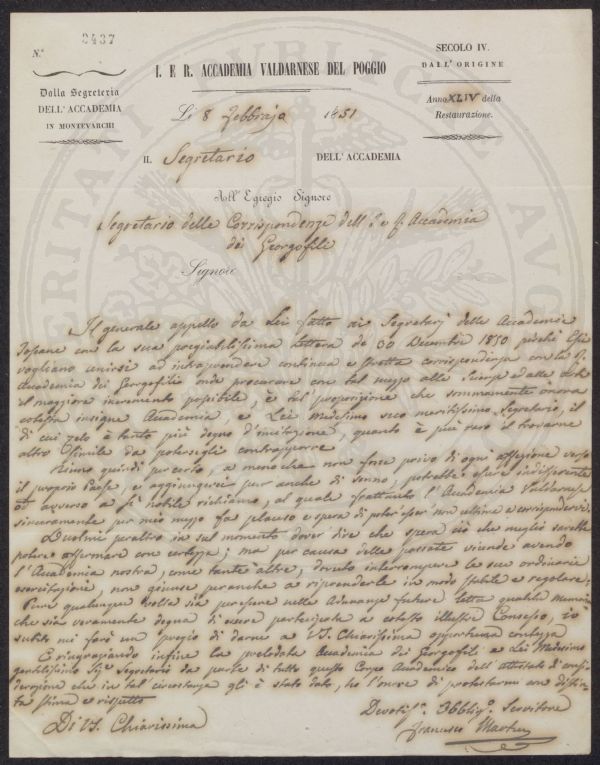 N.° 2437
Dalla Segreteria
DELL'ACCADEMIA
IN MONTEVARCHI
I. E R. ACCADEMIA VALDARNESE DEL POGGIO
SECOLO IV.
DALL'ORIGINE
Anno XLIV della
Restaurazione.
Li 8 Febbrajo 1851
IL Segretario DELL'ACCADEMIA
All'Egregio Signore
Segretario delle Corrispondenze dell'I. e R. Accademia
dei Georgofili
Signore
Il generale appello da Lei fatto ai Segretarj delle Accademie
Toscane con la sua pregiabilissima Lettera de 30 Decembre 1850, perchè Essi
vogliano unirsi ad intraprendere continua e stretta corrispondenza con la R.
Accademia dei Georgofili onde procurare con tal mezzo alle Scienze ed alle Arti
il maggiore incremento possibile, è tal proposizione che sommamente onora
cotesta insigne Accademia, e Lei medesimo suo meritissimo Segretario, il
di cui zelo è tanto più degno d'imitazione, quanto è più raro il trovarne
altro simile da potersegli contrapporre
Niuno quindi per certo, a meno che non fosse privo di ogni affezione verso
il proprio Paese, e aggiungerei pur anche di senno, potrebbe essere indifferente
od avverso a sì nobile richiamo, al quale frattanto l'Accademia Valdarnese
sinceramente per mio mezzo fa plauso e spera di poter esser non ultima a corrispondervi.
Duolmi peraltro in sul momento dover dire che spera ciò che meglio sarebbe
potere affermare con certezza; ma per causa delle passate vicende avendo
l'Accademia nostra, come tante altre, dovuto interrompere le sue ordinarie
esercitazioni, non giunse peranche a riprenderle in modo stabile e regolare.
Pure qualunque volta sia per esser nelle Adunanze future letta qualche Memoria
che sia veramente degna di essere partecipata a cotesto illustre Consesso, io
subito mi farò un pregio di darne a V.S. Chiarissima opportuna contezza
E ringraziando infine la prelodata Accademia dei Georgofili e Lei Medesimo
gentilissimo Sig.r Segretario da parte di tutto questo Corpo Accademico dell'attestato di consi-
derazione che in tal circostanza gli è stato dato, ho l'onore di protestarmi con distin-
ta stima e rispetto
Di V.S. Chiarissima
Devotiss.° Obblig.° Servitore
Francesco